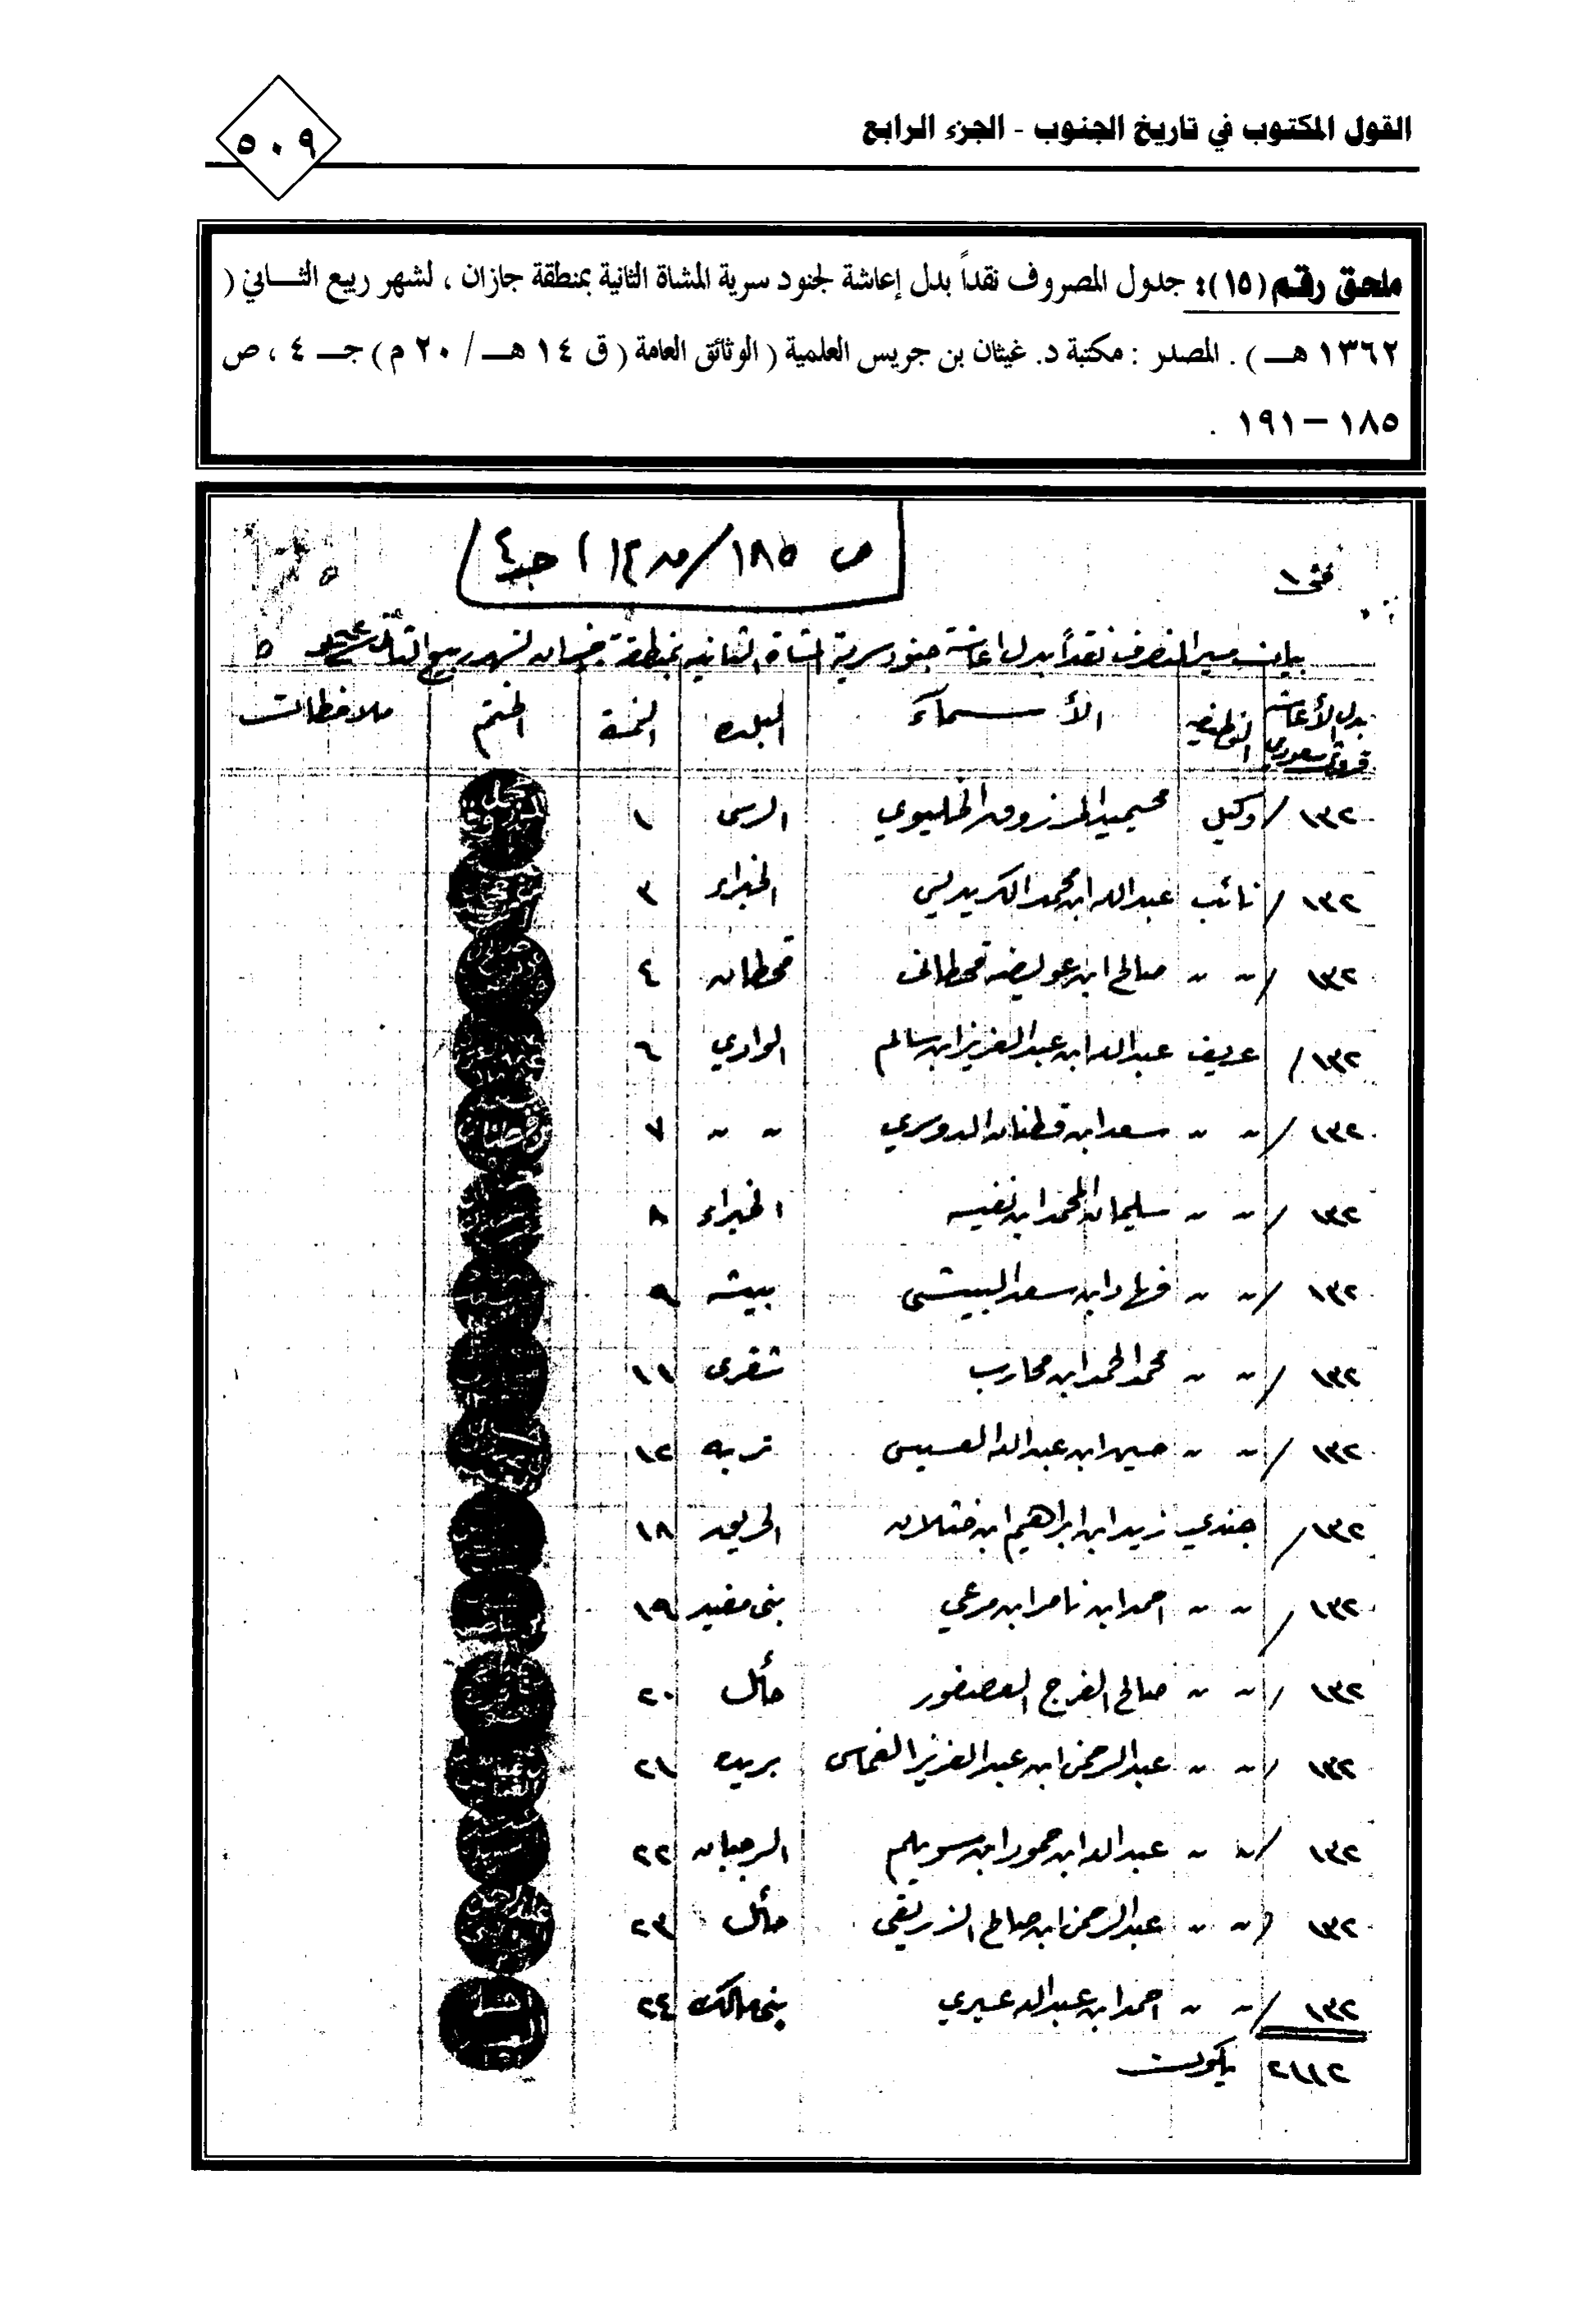 القول المكتوب في تاريخ الجنوب - الجزء الرابع
٥٠٩
ملحق رقم (١٥): جدول المصروف نقداً بدل إعاشة لجنود سرية المشاة الثانية بمنطقة جازان ، لشهر ربيع الثـــاني (
١٣٦٢ هـــ ) . المصدر : مكتبة د. غيثان بن جريس العلمية ( الوثائق العامة ( ق ١٤ هـــ / ٢٠ م ) جـــ ٤ ، ص
١٨٥ – ١٩١ .
ص ١٨٥ / جـ٤
بيان مسير المنصرف نقداً بدل اعاشة جنود سرية المشاة الثانيه بمنطقة جيزان لشهر ربيع الثاني
بدل الأعاشه قروش سعودي الوظيفه الأســمآء البلده النمرة الختم ملاحظات
١٣٢ / وكيل محيميد المرزوق الخليوي الرس ١
١٣٢ / نائب عبدالله ابن محمد الكريديس الخبراء ٣
١٣٢ / " " صالح ابن عويضه قحطانى قحطان ٤
١٣٢ / عريف عبدالله ابن عبدالعزيز ابن سالم الوادي ٦
١٣٢ / " " سعد ابن قطنان الدوسري " " ٧
١٣٢ / " " سليمان المحمد ابن نفيسه الخبراء ٨
١٣٢ / " " فهاد ابن سعد البيشى بيشه ٩
١٣٢ / " " محمد الحمد ابن محارب شقرى ١١
١٣٢ / " " حسين ابن عبدالله تربه ١٢
١٣٢ / جندي زيد ابن ابراهيم ابن خثلان الحريق ١٨
١٣٢ / " " احمد ابن ناصر ابن مرعي بنى مغيد ١٩
١٣٢ / " " صالح الفرج العصفور حائل ٢٠
١٣٢ / " " عبدالرحمن ابن عبدالعزيز الغماس بريده ٢١
١٣٢ / " " عبدالله ابن حمود ابن سويلم ٢٢
١٣٢ / " " عبدالرحمن ابن صالح الزريقى حائل ٢٣
١٣٢ / " " احمد ابن عبدالله عسيري بنى مالك ٢٤
٢١١٢ يكون